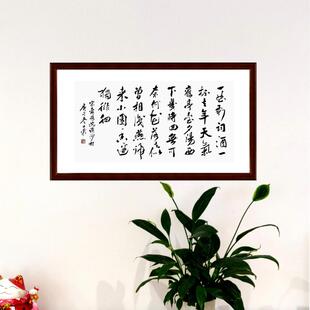 一曲新词酒一
杯去年天氣
舊亭台夕陽西
下幾時回無可
奈何花落去似
曾相識燕歸
来小園香徑
獨徘徊
宋晏殊浣溪沙